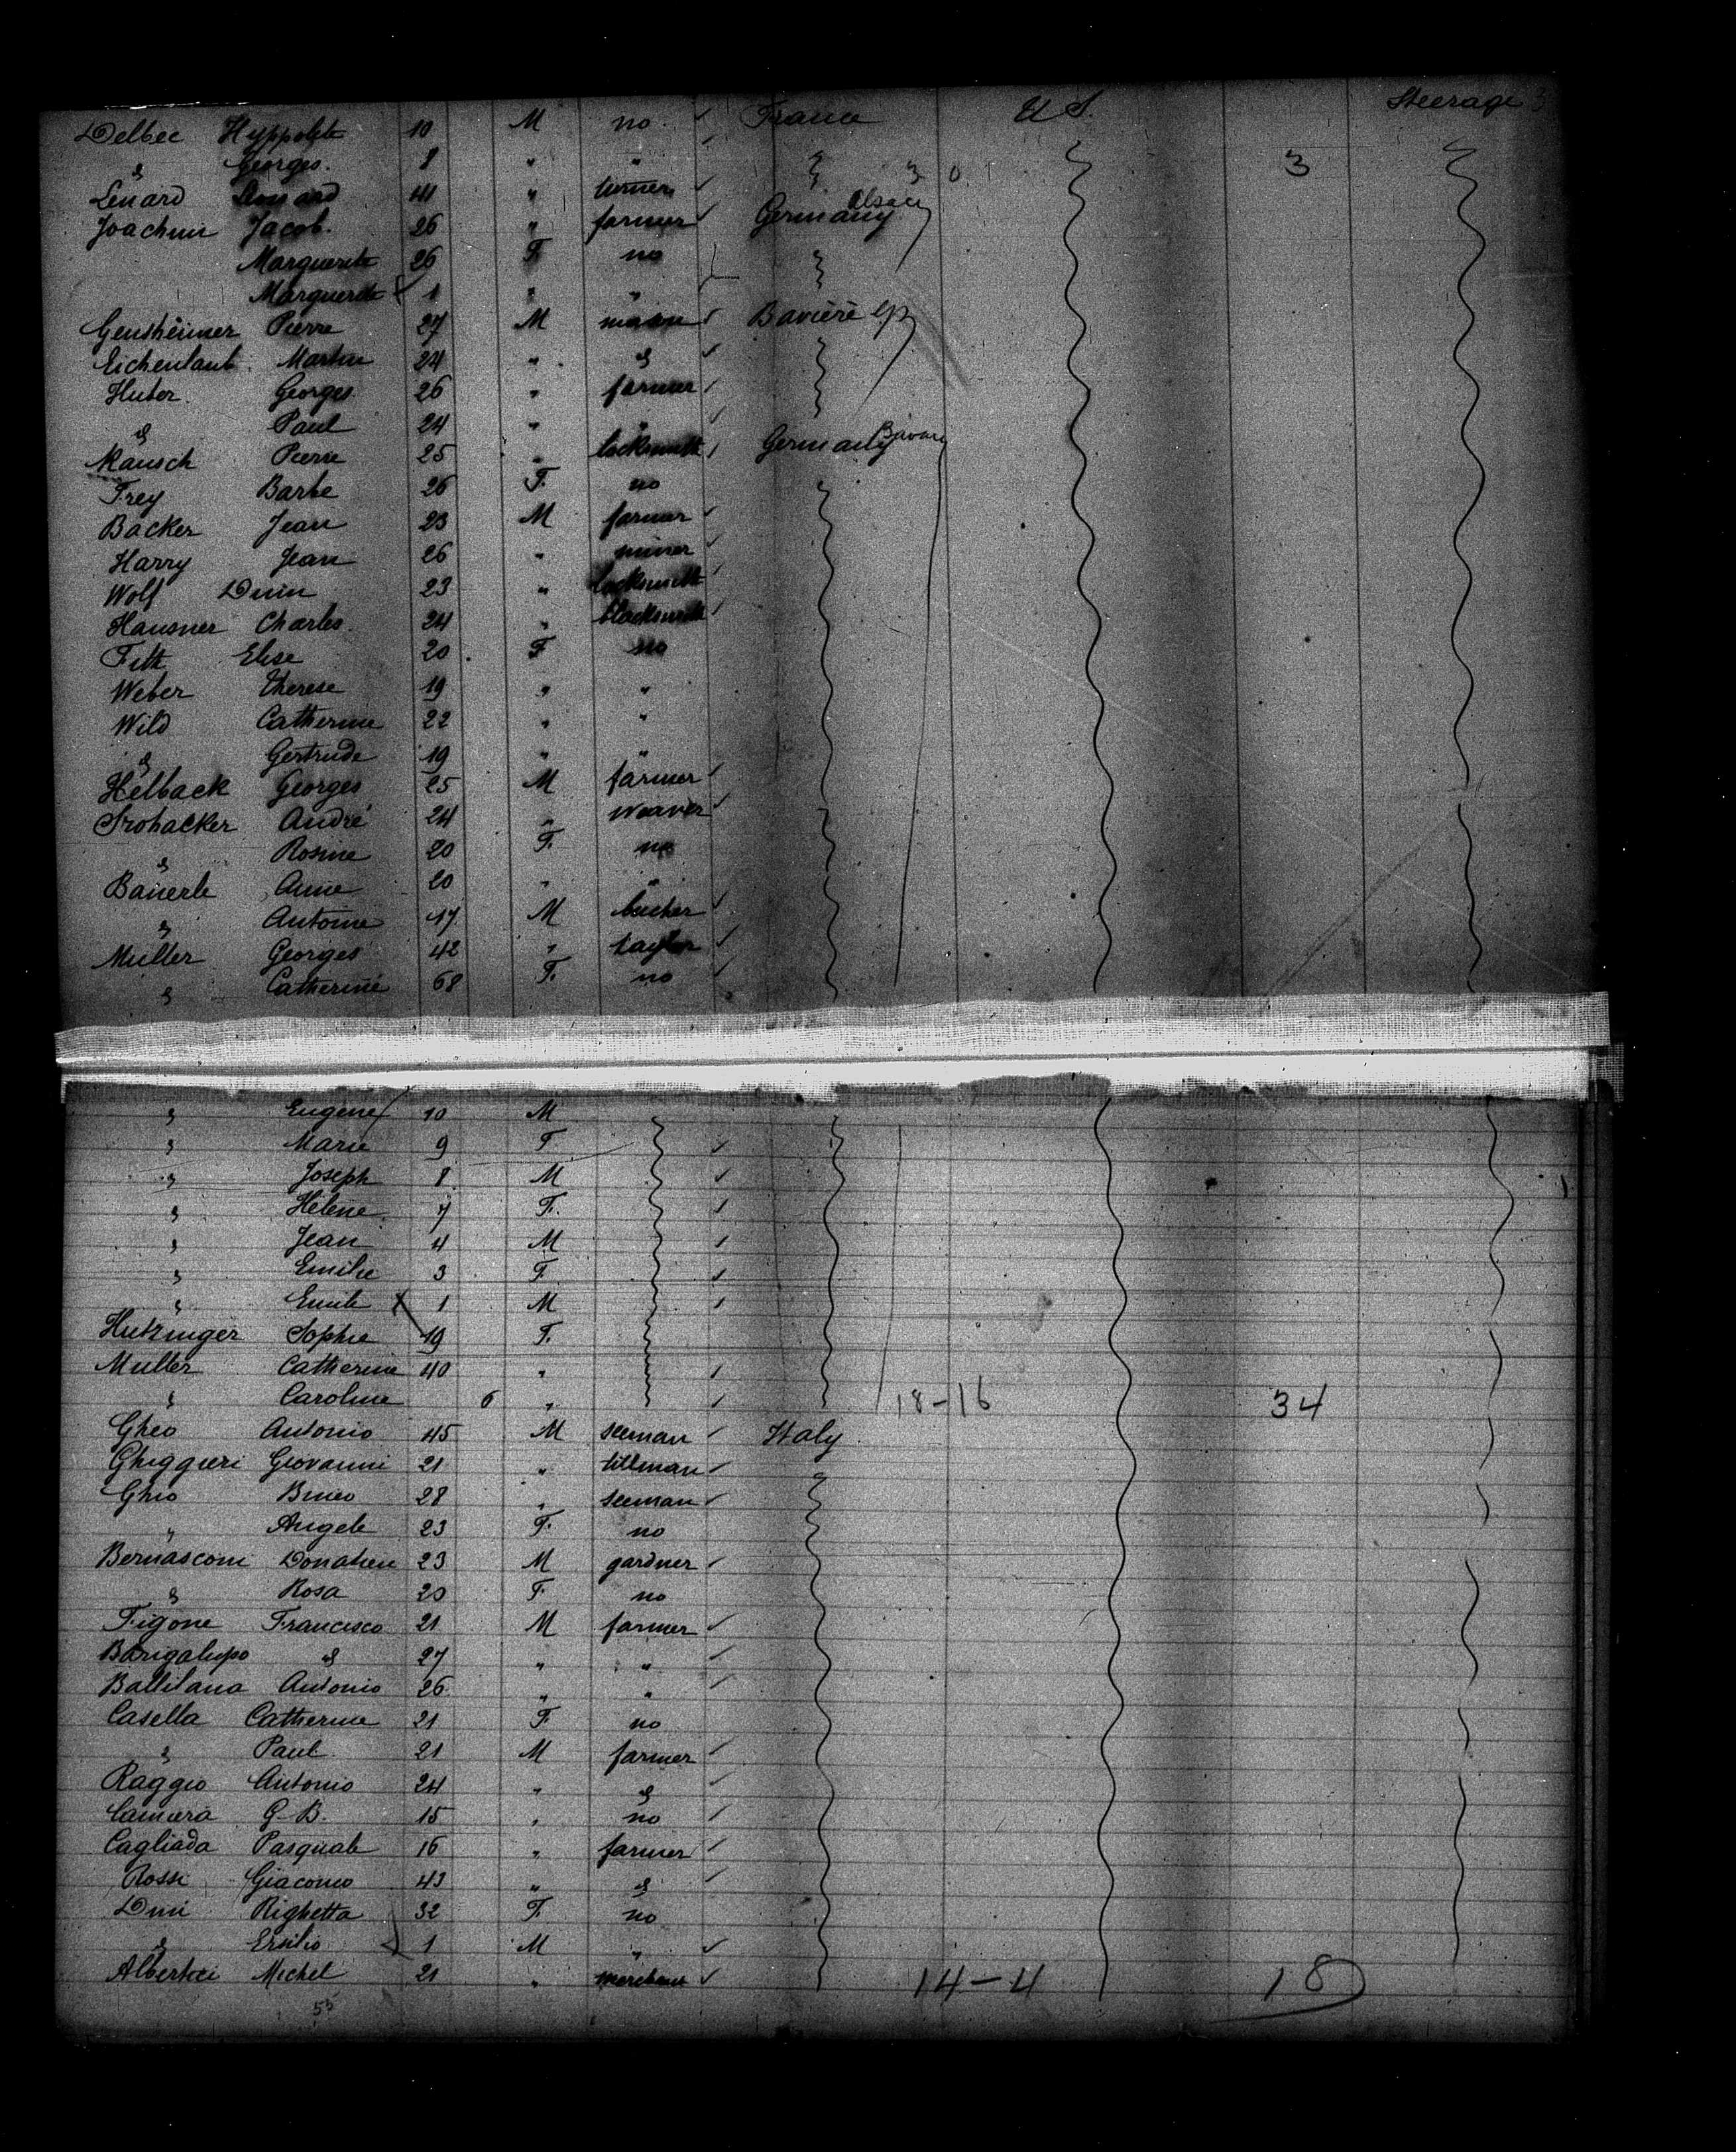 Delbec Hyppolite 10 M no France U S. Steerage 3
" Georges. 8 " " 3 0 3
Lenard Leonard 41 " turner
Joachim Jacob. 26 " farmer Germany Alsace
Marguerite 26 F. no
Marguerite 1 " "
Gensheimer Pierre 27 M mason Bavière
Eichenlaub Martin 24 " "
Huber. Georges 26 " farmer
" Paul 24 " "
Mausch Pierre 25 " locksmith Germany Bavary
Frey Barbe 26 F. no
Backer Jean 23 M farmer
Harry Jean 26 " miner
Wolf 23 " locksmith
Hausner Charles. 24 " blacksmith
Fith Elise 20 F no
Weber Therese 19 " "
Wild Catherine 22 " "
" Gertrude 19 " "
Helback Georges 25 M farmer
Strohacker André 24 " weaver
" Rosine 20 F. no
Bauerle Anne 20 " "
" Antoine 17 M bucher
Muller Georges 42 " taylor
" Catherine 68 F. no
" Eugene 10 M
" Marie 9 F
" Joseph 8 M
" Helene 7 F.
" Jean 4 M
" Emilie 3 F
" Emile 1 M
Hutzinger Sophie 19 F.
Muller Catherine 40 "
" Caroline 6 " 18-16 34
Gheo Antonio 45 M seeman Italy
Ghiggieri Giovanni 21 " tillman
Ghio 28 " seeman
" Angele 23 F. no
Bernasconi Donatien 23 M gardner
" Rosa 20 F no
Figone Francisco 21 M farmer
Barigalupo " 27 " "
Ballilana Antonio 26 " "
Casella Catherine 21 F no
" Paul 21 M farmer
Raggio Antonio 24 " "
Camera G-B. 15 " no
Cagliada Pasquale 16 " farmer
Rossi Giacomo 43 " "
Dini Righetta 32 F. no
" Ersilio 1 M "
Albertoci Michel 21 " merchant 14-4 18
55